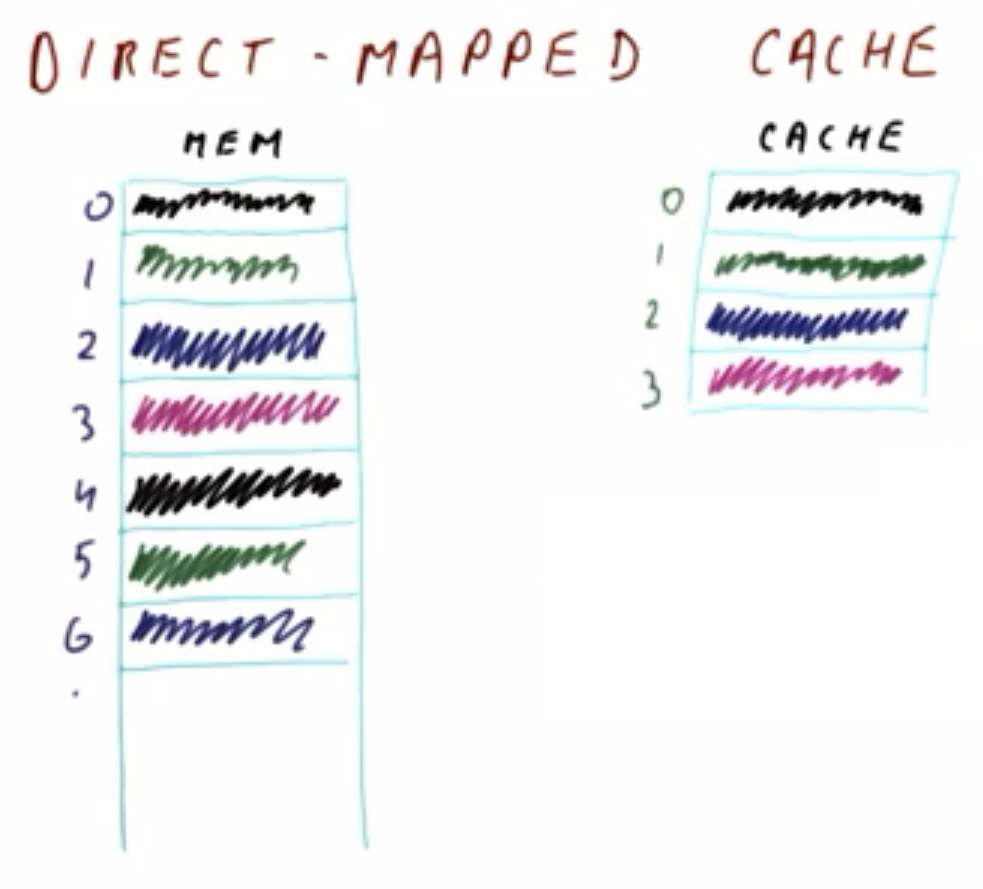 DIRECT-MAPPED CACHE
MEM
0
1
2
3
4
5
6
.
CACHE
0
1
2
3